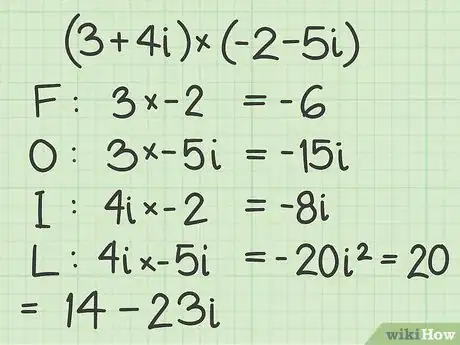 (3+4i)×(-2-5i)
F: 3×-2 = -6
O: 3×-5i = -15i
I: 4i×-2 = -8i
L: 4i×-5i = -20i² = 20
= 14 - 23i
wikiHow